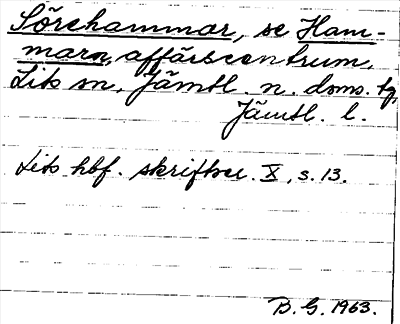 Sörehammar, se Ham-
maren, affärscentrum,
Lits sn, Jämtl. n. doms. tg,
Jämtl. l.
Lits hbf. skriftser. X, s. 13.
B. G. 1963.